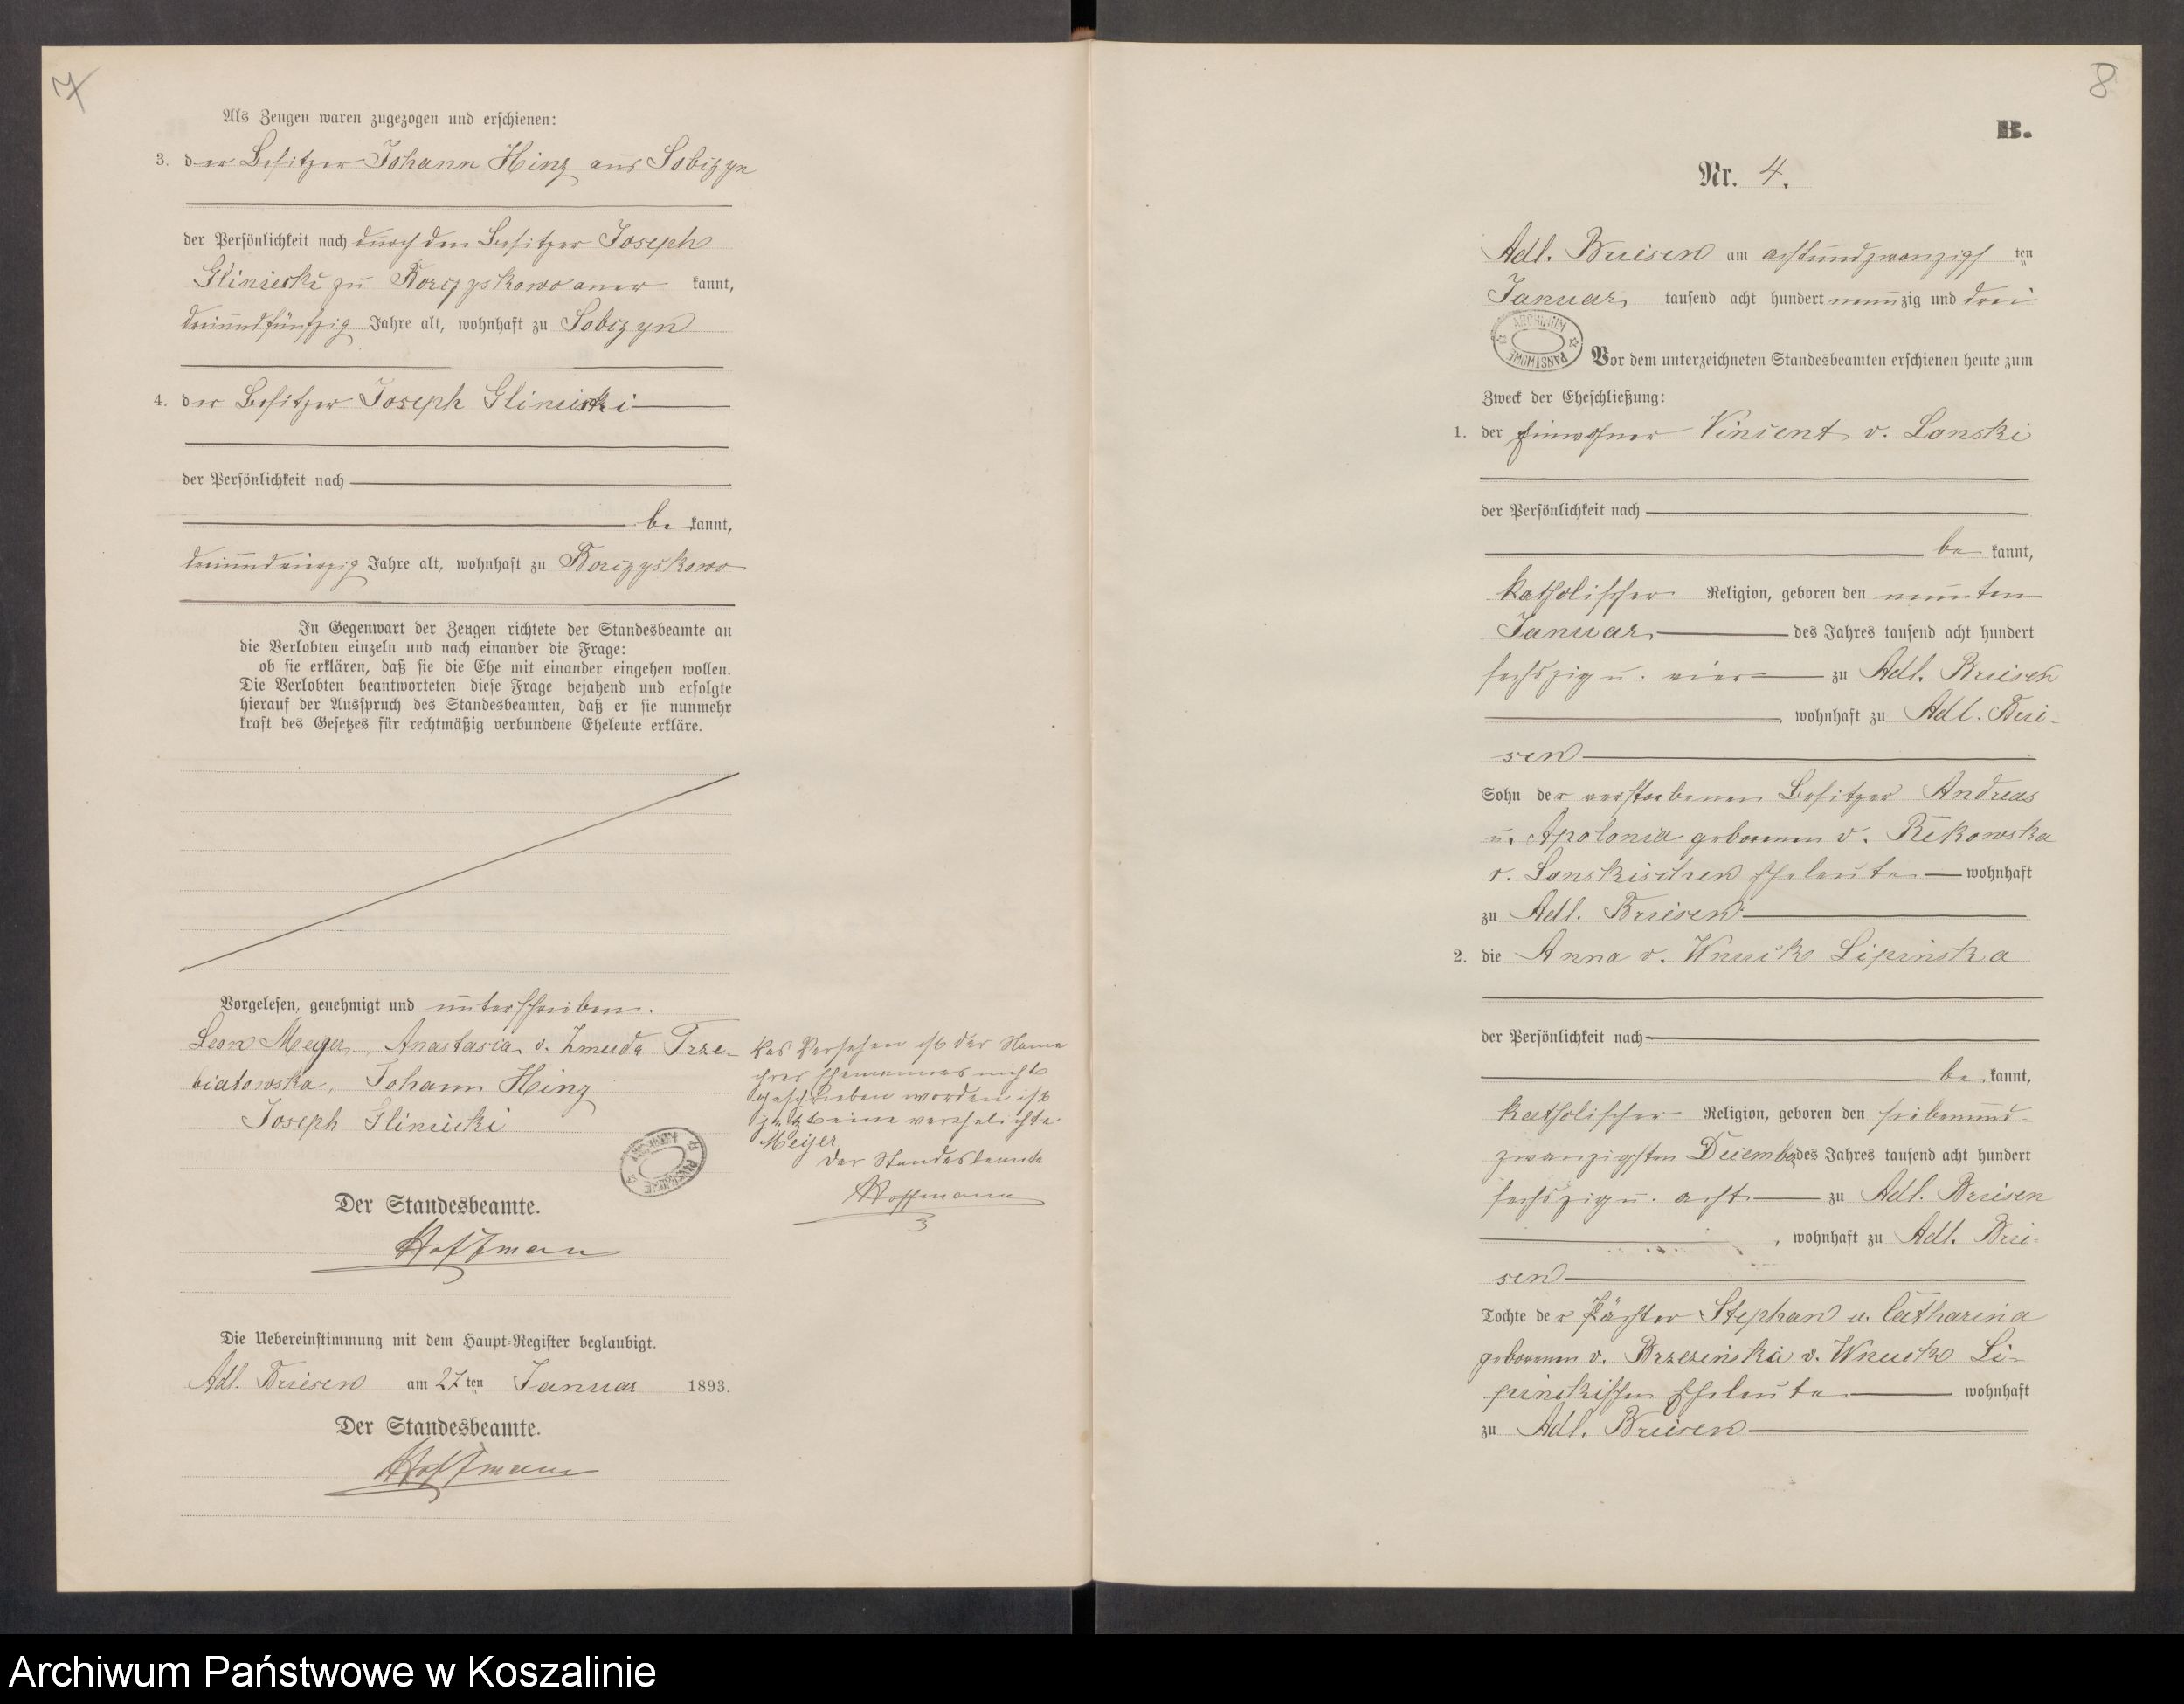 7
Als Zeugen waren zugezogen und erschienen:
3. der Besitzer Johann Hinz aus Sobizyn
der Persönlichkeit nach durch den Besitzer Joseph
Gliniecki zu aner kannt,
dreiundfünfzig Jahre alt, wohnhaft zu Sobizyn
4. der Besitzer Joseph Gliniecki
der Persönlichkeit nach
be kannt,
dreiundvierzig Jahre alt, wohnhaft zu Borczyskowo
In Gegenwart der Zeugen richtete der Standesbeamte an
die Verlobten einzeln und nach einander die Frage:
ob sie erklären, daß sie die Ehe mit einander eingehen wollen.
Die Verlobten beantworteten diese Frage bejahend und erfolgte
hierauf der Ausspruch des Standesbeamten, daß er sie nunmehr
kraft des Gesetzes für rechtmäßig verbundene Eheleute erkläre.
Vorgelesen, genehmigt und unterschrieben.
Leon Meyer, Anastasia v. Zmuda Trze-
biatowska, Johann Hinz
Joseph Gliniecki
Aus Versehen ist der Name
ihres Ehemannes nicht
geschrieben worden ist
jetzt eine verehelichte
Meyer
Der Standesbeamte
Hoffmann
Der Standesbeamte.
Hoffmann
Die Uebereinstimmung mit dem Haupt-Register beglaubigt.
Adl. Briesen am 27ten Januar 1893.
Der Standesbeamte.
Hoffmann
8
B.
Nr. 4.
Adl. Briesen am achtundzwanzigs ten
Januar tausend acht hundert neunzig und drei
ARCHIWUM PAŃSTWOWE
Vor dem unterzeichneten Standesbeamten erschienen heute zum
Zweck der Eheschließung:
1. der Einwohner Vincent v. Lonski
der Persönlichkeit nach
be kannt,
katholischer Religion, geboren den neunten
Januar des Jahres tausend acht hundert
sechszig u. vier zu Adl. Briesen
, wohnhaft zu Adl. Brie-
sen
Sohn der verstorbenen Besitzer Andreas
u. Apolonia geborenen v. Rekowska
v. Lonskischen Eheleute wohnhaft
zu Adl. Briesen
2. die Anna v. Wnuck Lipinska
der Persönlichkeit nach
be kannt,
katholischer Religion, geboren den siebenund-
zwanzigsten Dezember des Jahres tausend acht hundert
sechszig u. acht zu Adl. Briesen
, wohnhaft zu Adl. Brie-
sen
Tochte der Pächter Stephan u. Catharina
geborenen v. Brzezinska v. Wnuck Li-
pinskischen Eheleute wohnhaft
zu Adl. Briesen
Archiwum Państwowe w Koszalinie